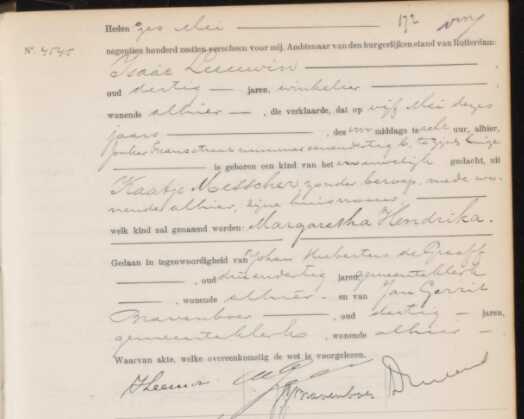 Heden zes Mei 172
Nº. 4545 negentien honderd zestien verscheen voor mij, Ambtenaar van den burgerlijken stand van Rotterdam:
Isaac Leeuwin
oud dertig jaren, winkelier
wonende alhier, die verklaarde, dat op vijf Mei dezes
jaars, des middags te acht uur, alhier,
nummer te zijnen huize
is geboren een kind van het vrouwelijk geslacht, uit
Kaatje Messcher, zonder beroep, mede wo-
nende alhier, zijne huisvrouw,
welk kind zal genaamd worden: Margaretha Hendrika.
Gedaan in tegenwoordigheid van Johan Hubertus de Graaff
, oud drieendertig jaren, gemeenteklerk
, wonende alhier en van Jan Gerrit
Bravenboer, oud dertig jaren,
gemeenteklerk, wonende alhier
Waarvan akte, welke overeenkomstig de wet is voorgelezen.
Bravenboer